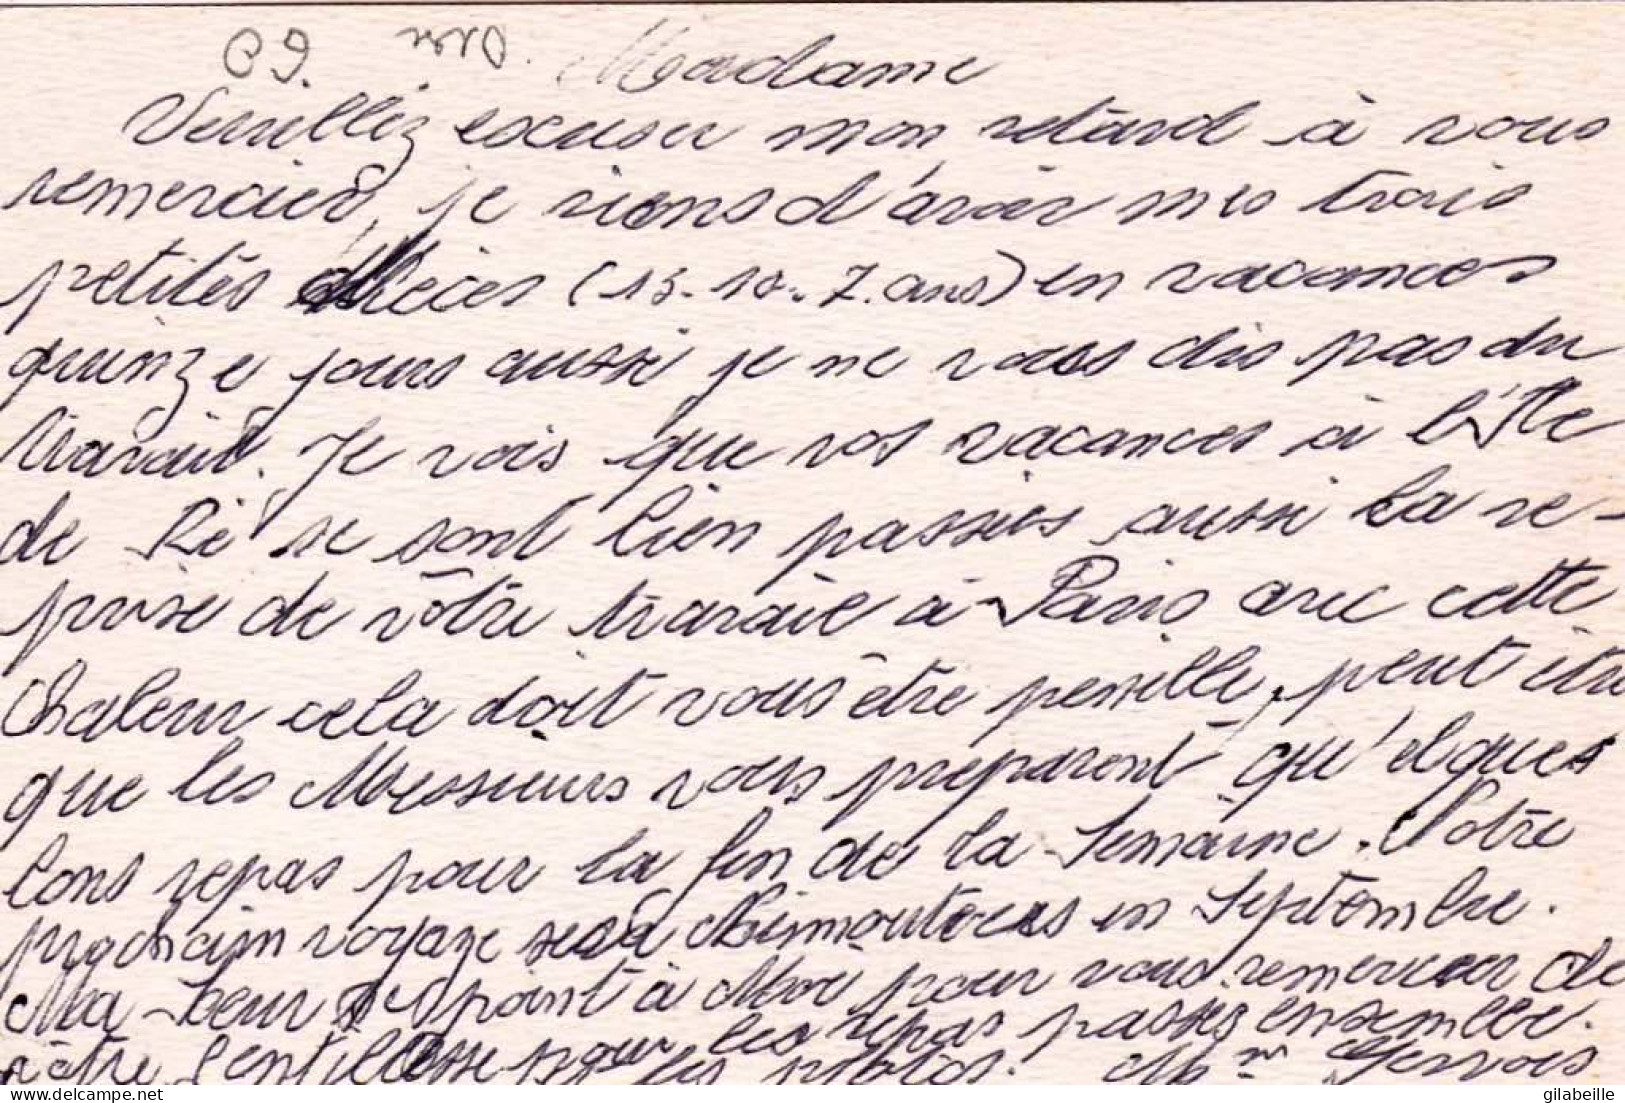 Madame
Veuillez excuser mon retard à vous
remercier, je viens d'avoir mes trois
petites Nièces (13-10-7.ans) en vacances
quinze jours aussi je ne vous dis pas du
travail. Je vois que vos vacances à l'Ile
de Ré se sont bien passées aussi la re-
prise de vôtre travail à Paris avec cette
Chaleur cela doit vous être penible, peut être
que les Messieurs vous préparent qu'elques
bons repas pour la fin de la Semaine. Notre
prochain voyage sera Noirmoutiers en Septembre.
Ma Soeur se joint à Moi pour vous remercier de
vôtre Gentillesse pour les repas passés ensemble.
les photos. Mme Gervois
gilabeille